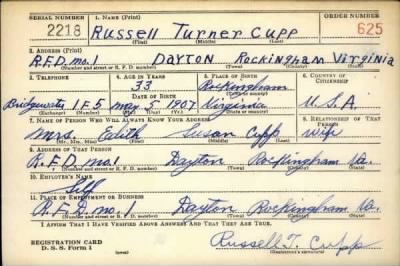 SERIAL NUMBER 1. NAME (Print) ORDER NUMBER
2218 Russell Turner Cupp 625
(First) (Middle) (Last)
2. ADDRESS (Print)
R.F.D. no. 1 DAYTON Rockingham Virginia
(Number and street or R. F. D. number) (Town) (County) (State)
3. TELEPHONE 4. AGE IN YEARS 5. PLACE OF BIRTH 6. COUNTRY OF CITIZENSHIP
33 Rockingham
DATE OF BIRTH (Town or county)
Bridgewater 1F5 May 5 1907 Virginia U.S.A.
(Exchange) (Number) (Mo.) (Day) (Yr.) (State or country)
7. NAME OF PERSON WHO WILL ALWAYS KNOW YOUR ADDRESS 8. RELATIONSHIP OF THAT PERSON
Mrs. Edith Susan Cupp wife
(Mr., Mrs., Miss) (First) (Middle) (Last)
9. ADDRESS OF THAT PERSON
R.F.D. no. 1 Dayton Rockingham Va.
(Number and street or R. F. D. number) (Town) (County) (State)
10. EMPLOYER'S NAME
Self
11. PLACE OF EMPLOYMENT OR BUSINESS
R.F.D. no. 1 Dayton Rockingham Va.
(Number and street or R. F. D. number) (Town) (County) (State)
I AFFIRM THAT I HAVE VERIFIED ABOVE ANSWERS AND THAT THEY ARE TRUE.
REGISTRATION CARD Russell T. Cupp
D. S. S. Form 1 (Registrant's signature)